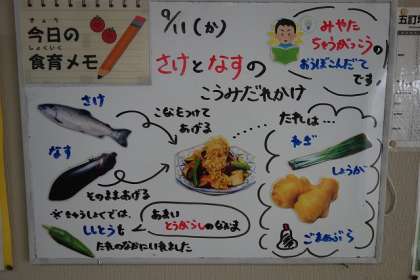 きょう
今日の
しょくいく
食育メモ
9/11(か)
さけとなすの
こうみだれかけ
みやた
ちゅうがっこうの
おうぼこんだて
です。
さけ
こなをつけて
あげる
なす
そのままあげる
たれは…
ねぎ
しょうが
ごまあぶら
※きゅうしょくでは、
ししとうも
たれのなかにいれました
あまい
とうがらしのなかま